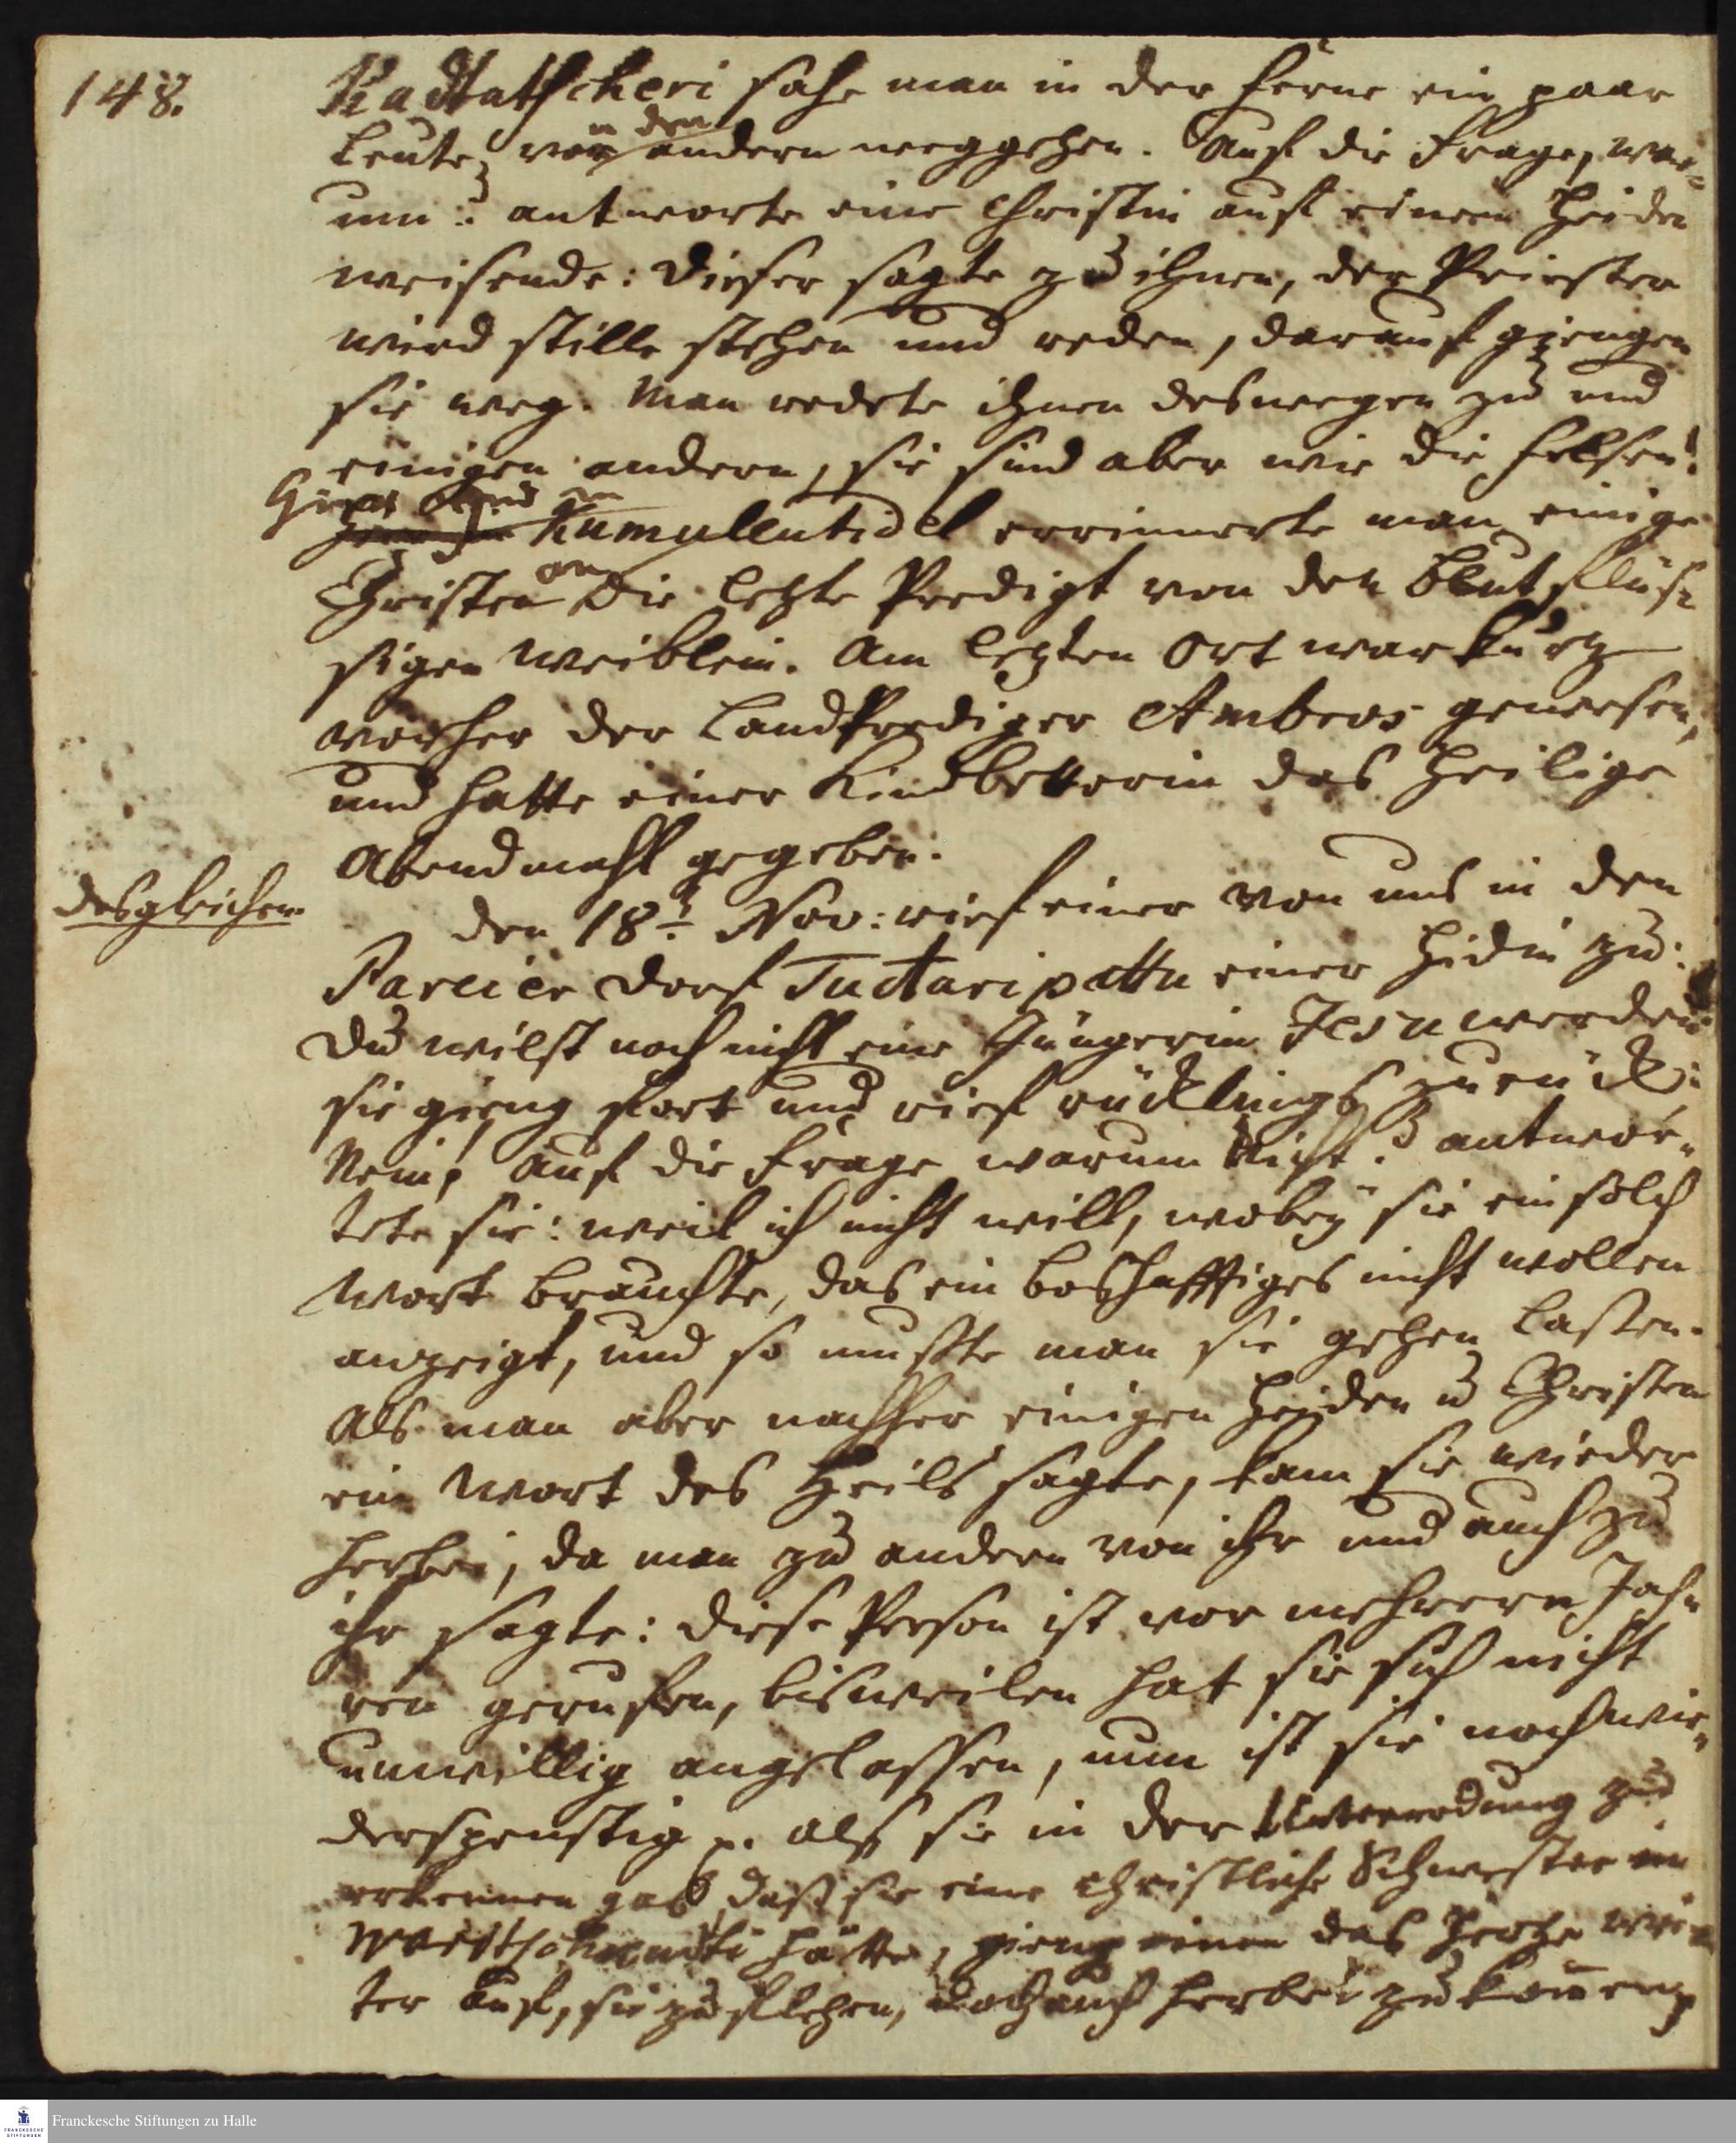 148.
Kadtatscheri sahe man in der Ferne ein paar
Leute, von den andern weggehen. Auf die Frage, war-
um? antworte eine Christin auf einen Heiden
weisende: Dieser sagte zu ihnen, der Priester
wird stille stehen und reden, darauf giengen
sie weg. Man redete ihnen deswegen zu und
einigen andern, sie sind aber wie die Felsen.
Hier und in Kumulentidel errinnerte man einige
Christen an die letzte Predigt von den blutflüs-
sigen Weiblein. Am letzten Ort war kurtz
vorher der Landprediger Ambros gewesen,
und hatte einer Kindbetterin das heilige
Abendmahl gegeben.
desgleichen
den 18t Nov: rief einer von uns in den
Pareier dorf Tuctaripattu einer Heidin zu:
Du wilst noch nicht eine Jüngerin Jesu werden?
sie gieng fort und rief rücklings zurück:
Nein! Auf die Frage warum nicht? antwor-
tete sie: weil ich nicht will, wobey sie ein solch
Wort brauchte, das ein boshafftiges nicht wollen
anzeigt, und so muste man sie gehen lassen.
Als man aber nachher einigen Heiden u Christen
ein Wort des Heils sagte, kam sie wieder
herbei, da man zu andern von ihr und auch zu
ihr sagte: diese Person ist vor mehreren Jah-
ren gerufen, bisweilen hat sie sich nicht
unwillig angelassen, nun ist sie noch wie-
derspenstig p. als sie in der Unterredung zu
erkennen gab, daß sie eine christliche Schwester in
hätte, gieng einen das Hertze wei-
ter auf, sie zu flehen, doch auch herbei zu kom̄en
Franckesche Stiftungen zu Halle
FRANCKESCHE
STIFTUNGEN